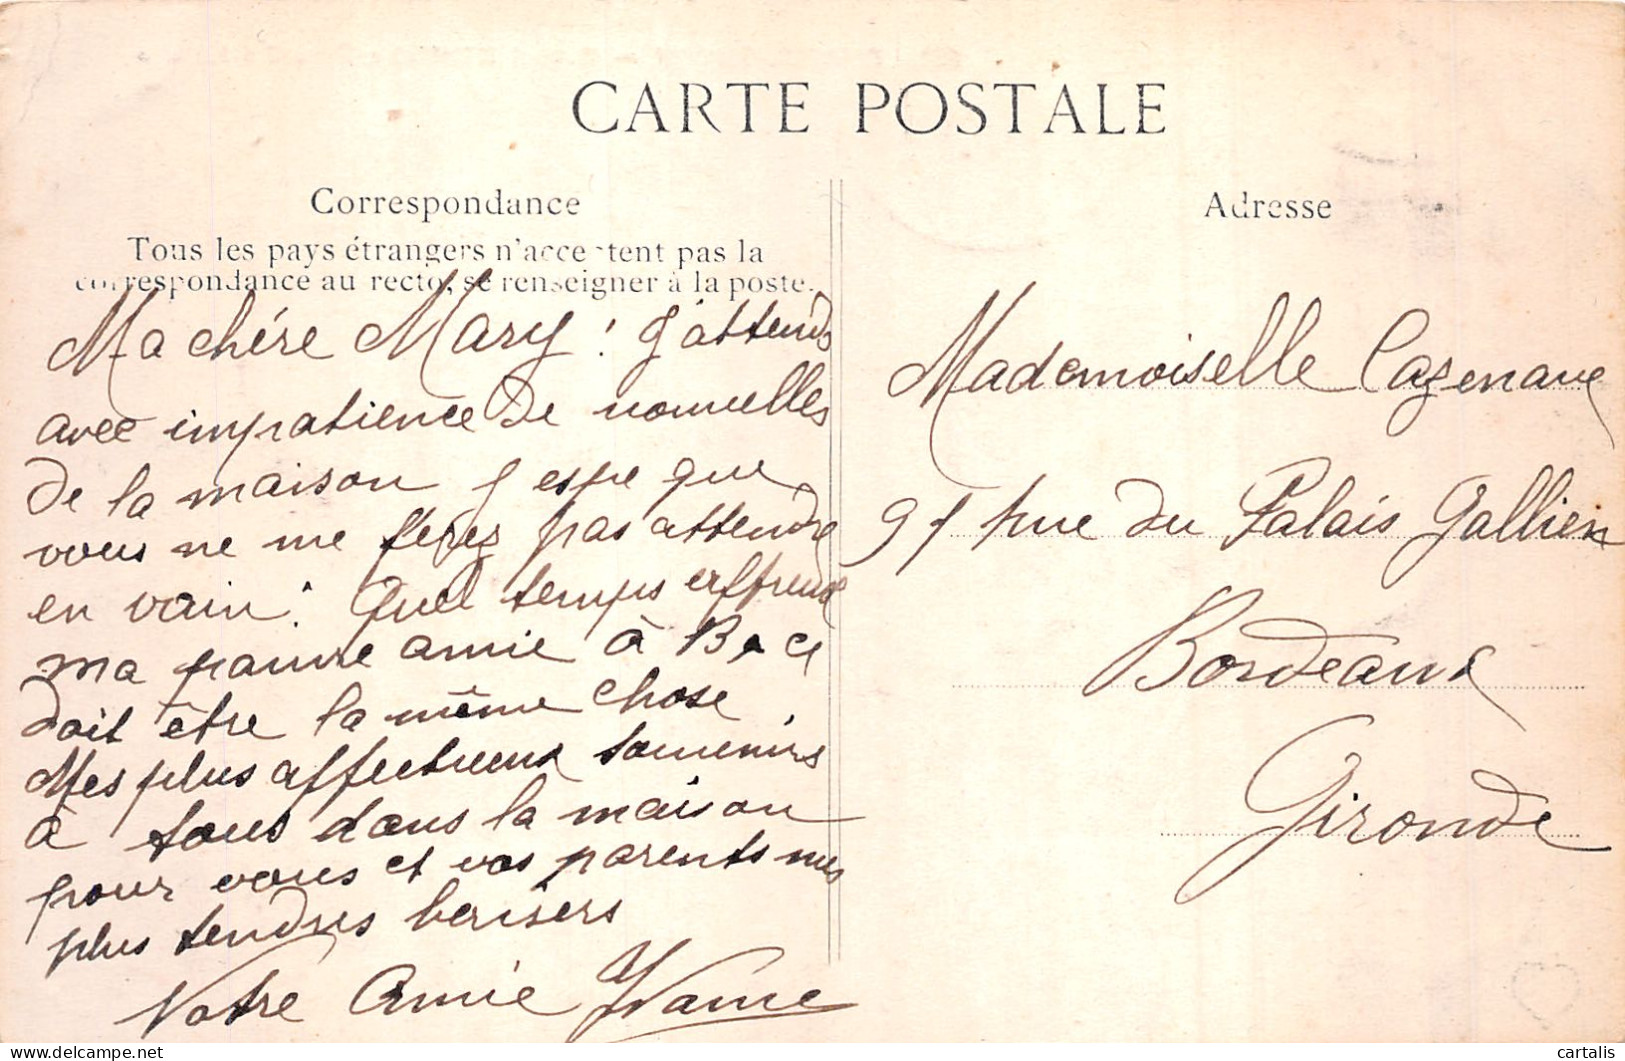 CARTE POSTALE
Correspondance
Tous les pays étrangers n'acceptent pas la
correspondance au recto, se renseigner à la poste.
Ma chére Mary ! J'attends
avec impatience de nouvelles
de la maison J espe que
vous ne me ferez pas attendre
en vain. Quel temps
ma pauvre amie à
doit être la même chose
Mes plus affectueux souvenirs
à tous dans la maison
pour vous et vos parents mes
plus tendres
Votre Amie Yvonne
Adresse
Mademoiselle Cazenave
91 rue du Palais Gallien
Bordeaux
Gironde
cartalis
delcampe.net